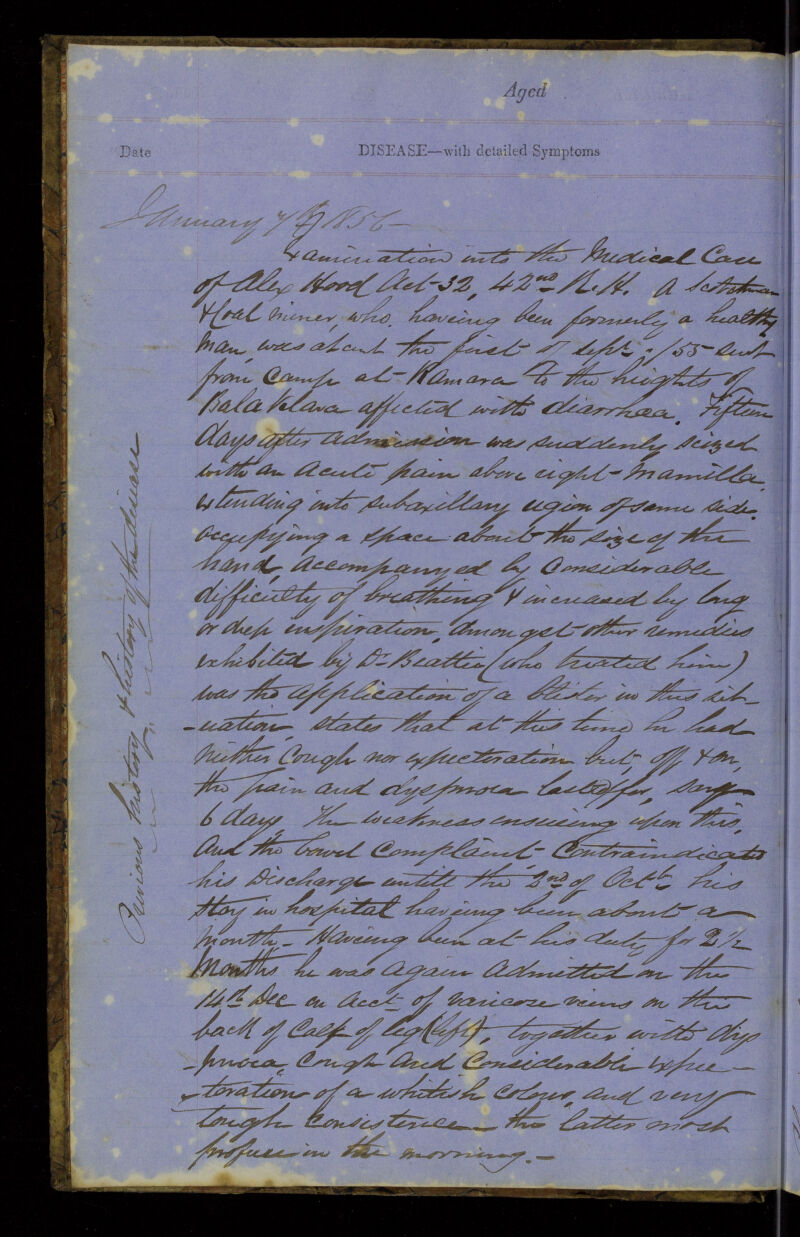 Aged
Date
DISEASE—with detailed Symptoms
January 7th 1856—
Examination into the Medical Case
of Alex Hood Aet 32, 42nd R.H. A Scotchman
& Coal miner, who having been formerly a healthy
Man, was about the first of Septr; /55 sent
from Camp at Kamara to the heights of
Balaklava affected with diarrhoea. Fifteen
days after admission was suddenly seized
with an acute pain above right Mamilla
extending into subaxillary region of same side.
occupying a space about the size of the
hand, accompanyed by Considerable
difficulty of breathing & increased by long
or deep inspiration, Amongst other remedies
exhibited by Dr Beattie (who treated him)
was the application of a blister in this sit-
-uation, states that at this time he had
neither Cough nor expectoration but, off & on,
the pain and dyspnoea lasted for, say
6 days. The weakness ensuing upon this,
And the bowel Complaint, Contraindicated
his Discharge until the 2nd of Octr his
stay in hospital having been about a
month — Having been at his duty for 2½
Months he was again admitted on the
14th Dec on acct of varicose veins on the
back of Calf of leg (left), together with dys
-pnoea, Cough and Considerable expec-
-toration of a whitish colour, and very
tough Consistence — the latter most
profuse in the morning. —
Previous history & history of the disease